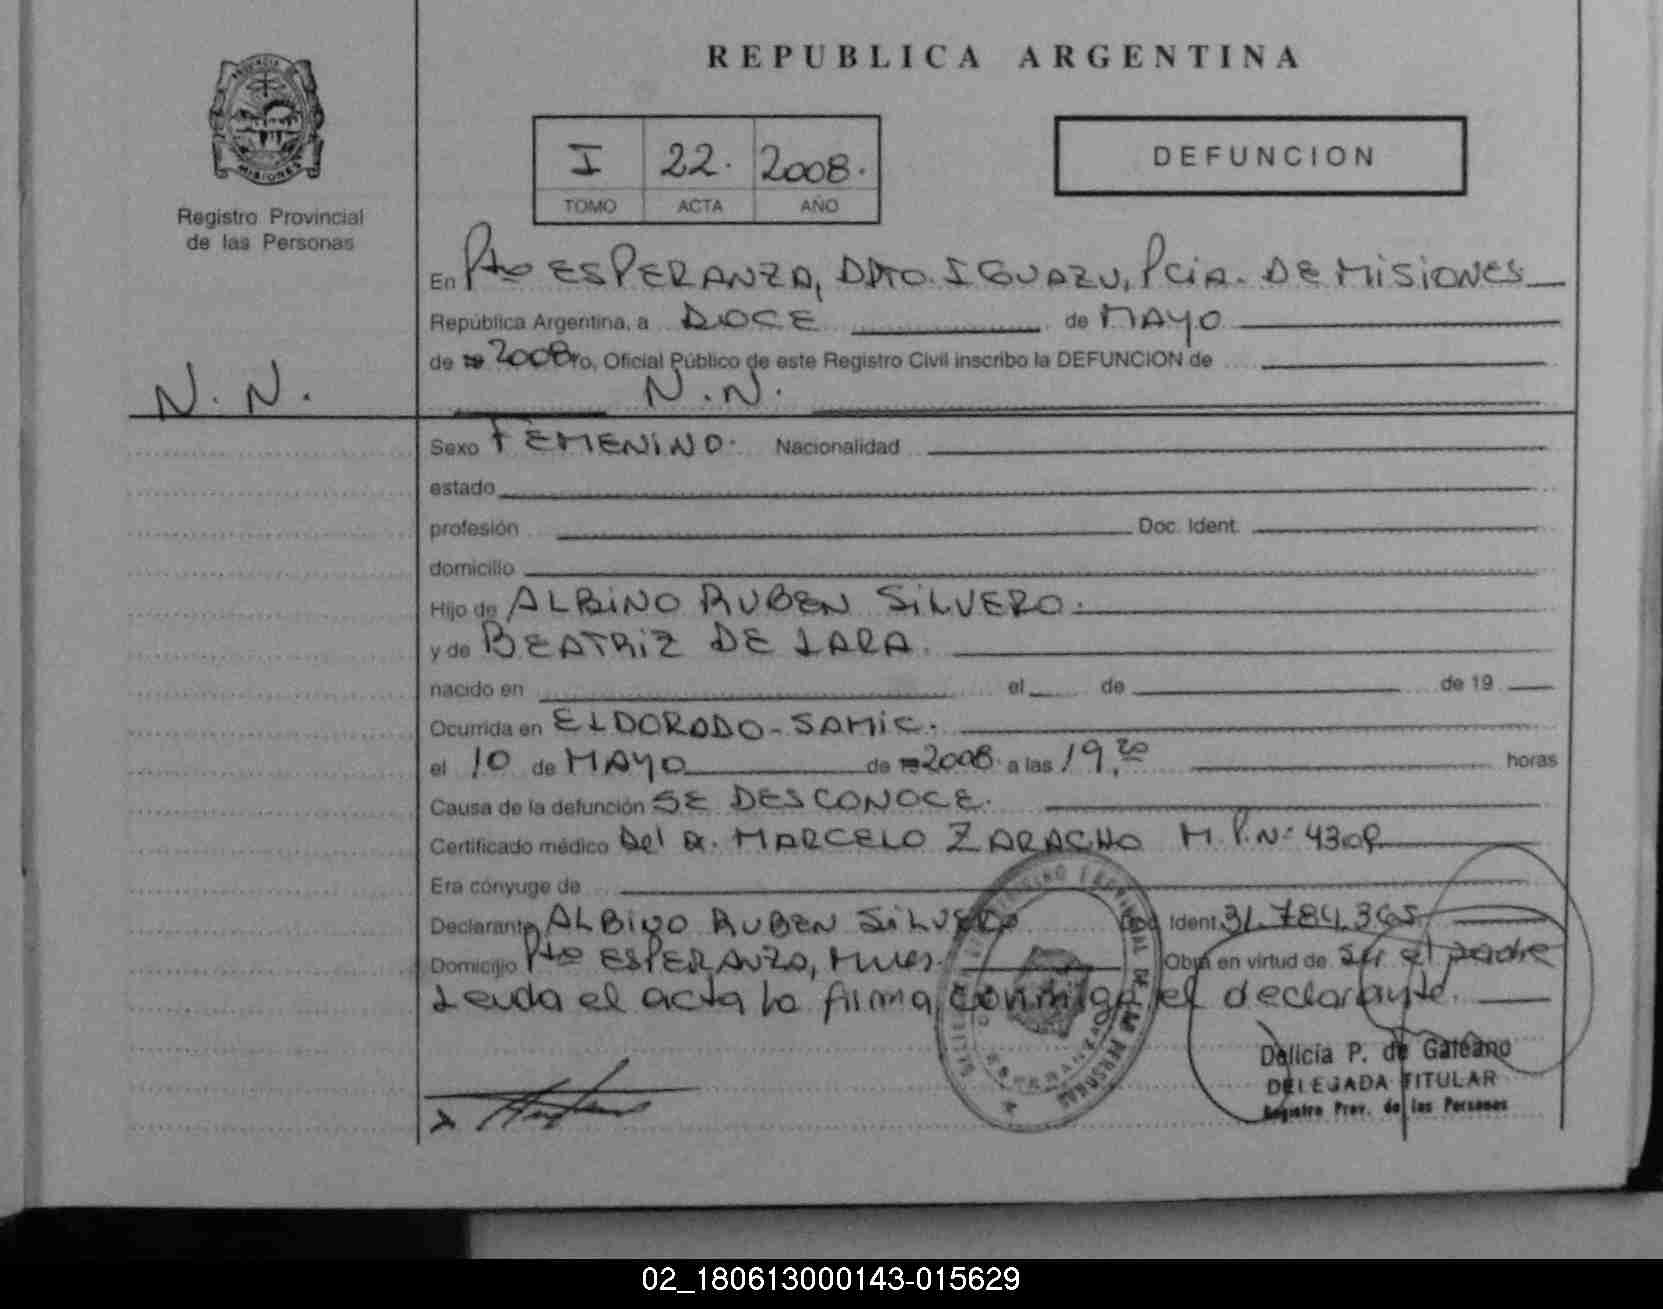 REPUBLICA ARGENTINA
PROVINCIA
MISIONES
Registro Provincial
de las Personas
I 22. 2008.
TOMO ACTA AÑO
DEFUNCION
En Pto ESPERANZA, DPTO. IGUAZU, Pcia. DE MISIONES
República Argentina, a DOCE de MAYO
de 2008 Yo, Oficial Público de este Registro Civil inscribo la DEFUNCION de
N. N.
N. N.
Sexo FEMENINO. Nacionalidad
estado
profesión Doc. Ident.
domicilio
Hijo de ALBINO RUBEN SILVERO.
y de BEATRIZ DE LARA.
nacido en el de de 19
Ocurrida en ELDORADO - SAMIC.
el 10 de MAYO de 2008 a las 19,20 horas
Causa de la defunción SE DESCONOCE.
Certificado médico Del Dr. MARCELO ZARACHO M.P. Nº
Era cónyuge de
Declarante ALBINO RUBEN SILVERO Doc. Ident. 31.784.365
Domicilio Pto ESPERANZA, Mnes. Obra en virtud de ser el padre
Leida el acta la firma conmigo el declarante.
Delicia P. de Galeano
DELEGADA TITULAR
Registro Prov. de las Personas
02_180613000143-015629